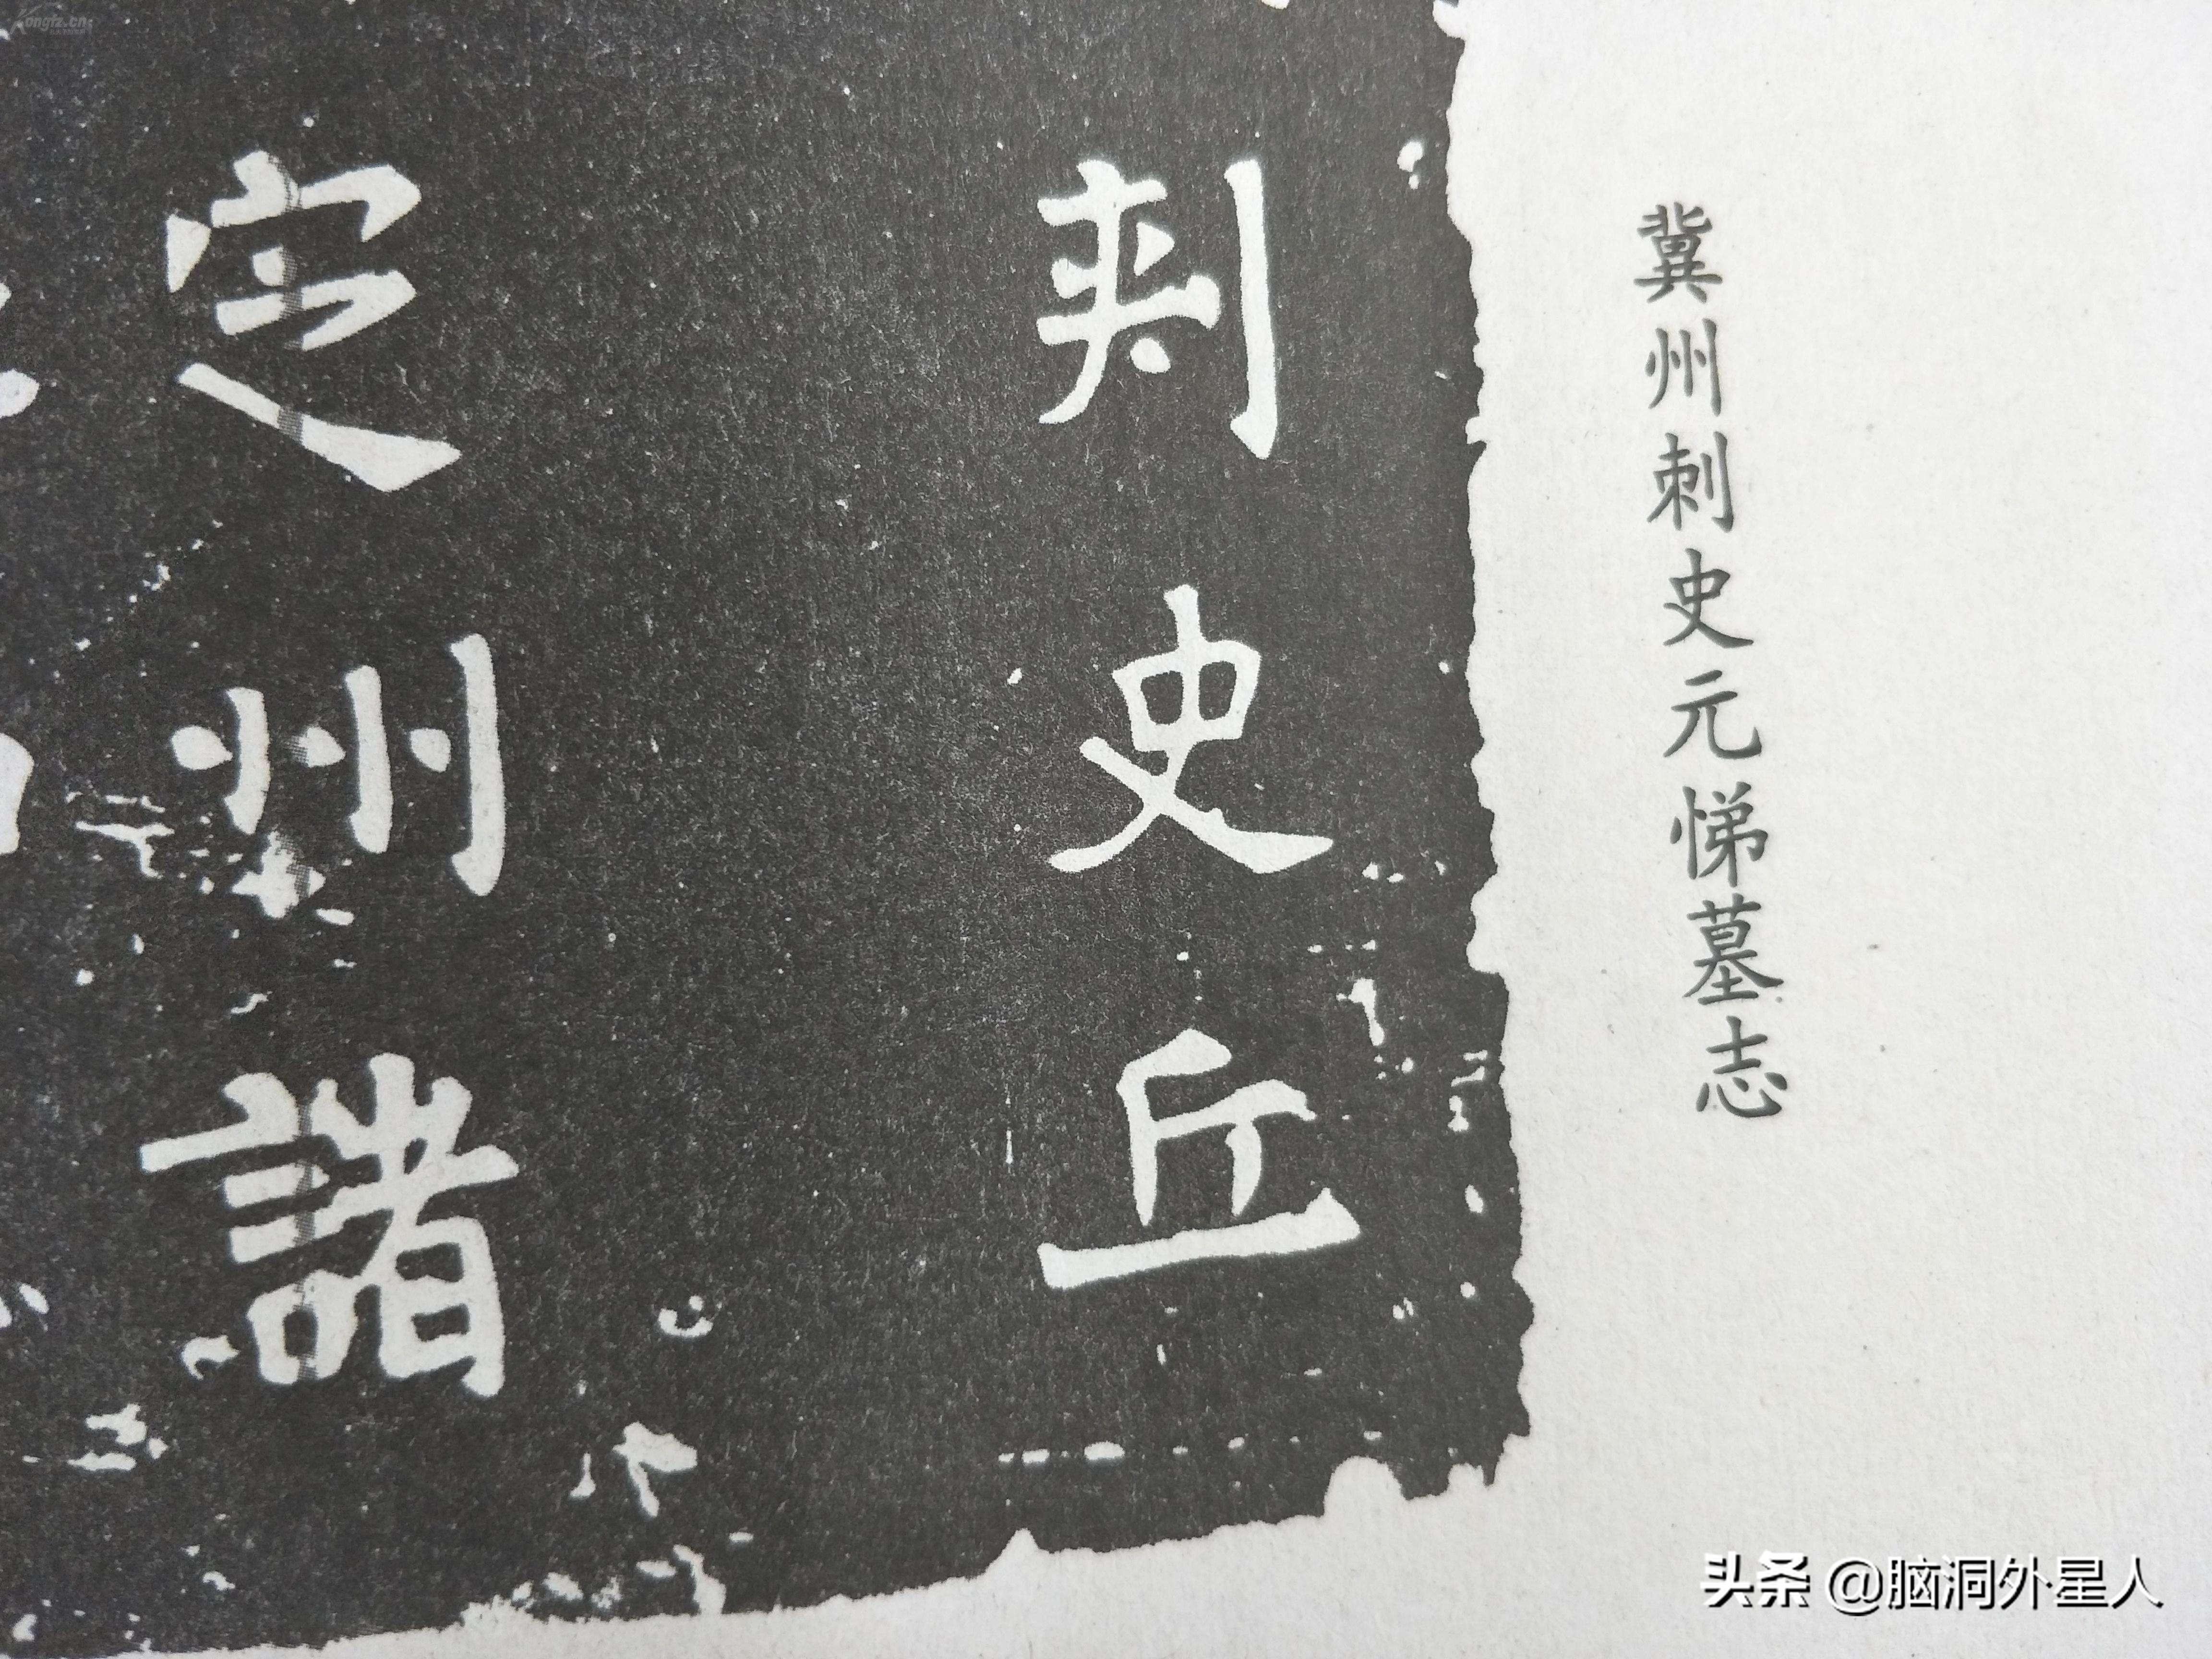 冀州刺史元悌墓志
刺史丘
定州諸
头条 @脑洞外星人
Kongfz.cn